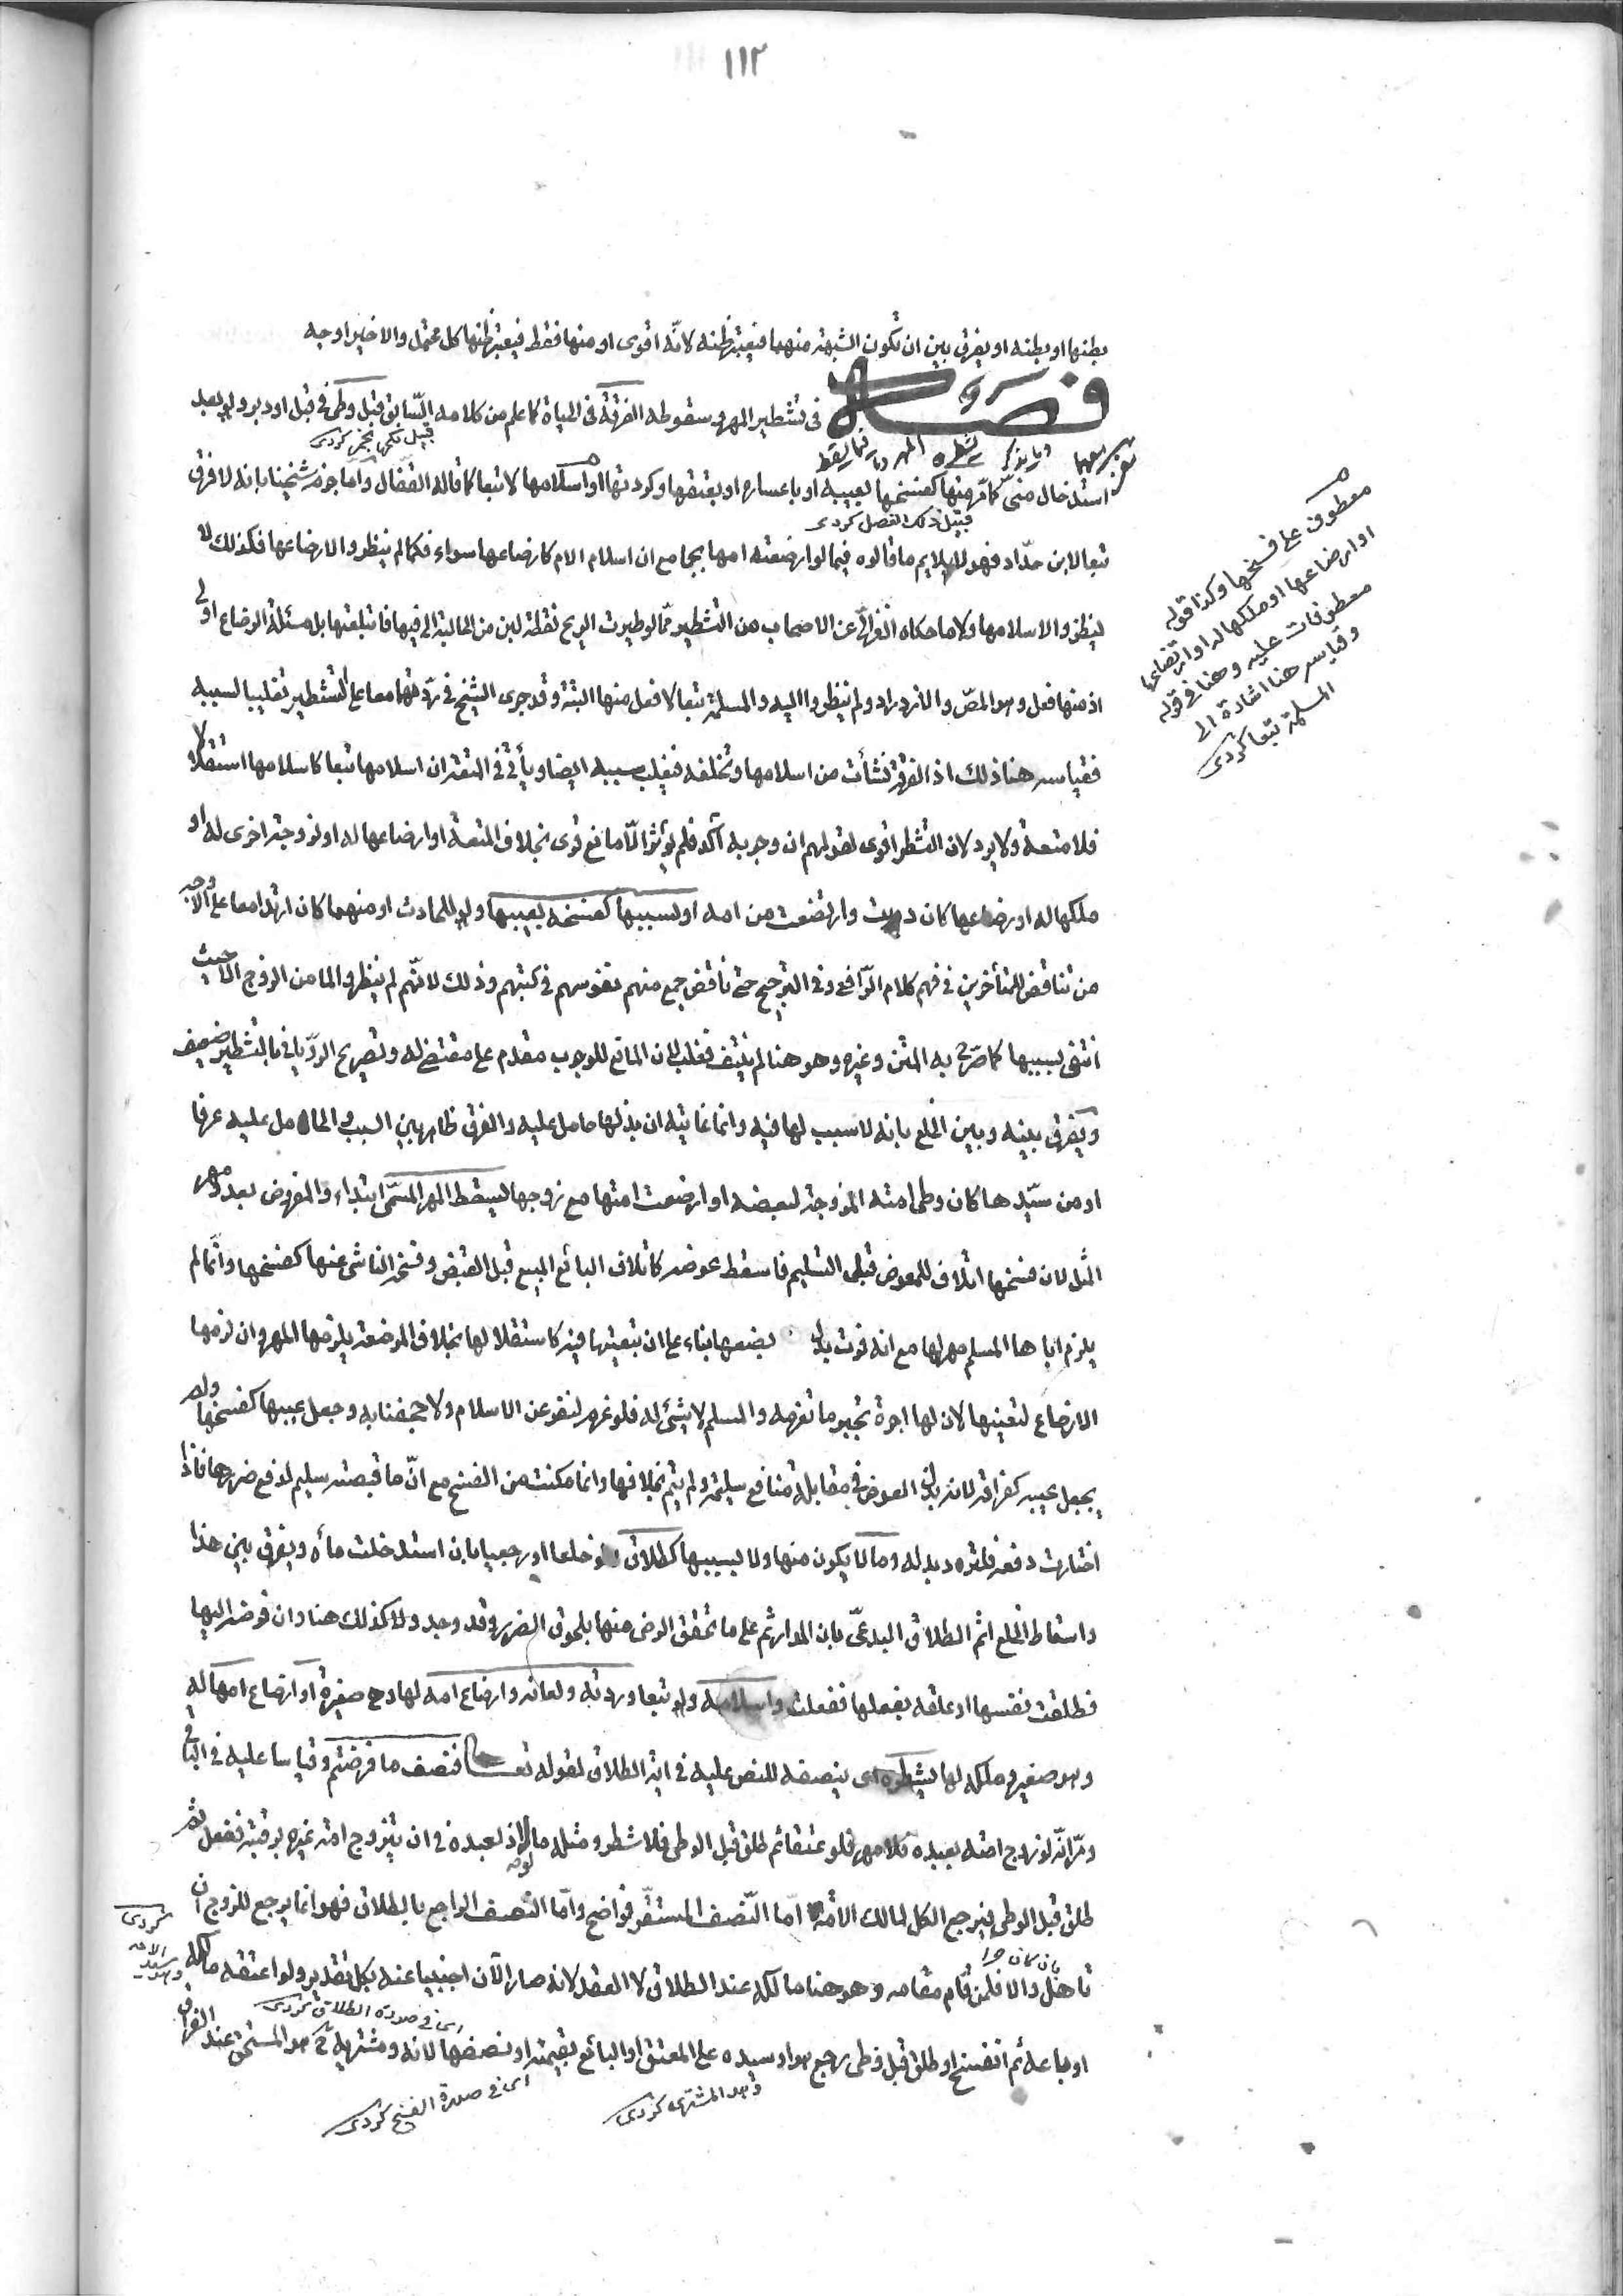 ١١٢
بطنها او بطنه او يفرق بين ان تكون الشبهة منهما فيعتبر ظنه لانّه اقوى او منها فقط فيعتبر ظنها كل محتمل والاخير اوجه
فصل في تشطير المهر وسقوطه الفرقة في الحياة كما علم من كلامه السّابق قبل وطئ في قبل او دبر ولو بعد
قبيل نكحها بخمر كردى
استدخال منىّ كما مر منها كفسخها بعيبه او باعساره او بعتقها وكردتها او اسلامها لا تبعا كما قاله القفّال وامّا جزم شيخنا بانه لا فرق
قبيل ذلك الفصل كردى
تبعا لابن حدّاد فهو لا يلايم ما قالوه فيما لو ارضعته امها بجامع ان اسلام الام كارضاعها سواء فكما لم ينظروا لارضاعها فكذلك لا
ينظروا لاسلامها ولا ما حكاه الغزالّى عن الاصحاب من التشطير فيما لو طيرت الريح نقطة لبن من الحالبة الى فيها فابتلعتها بل مسئلة الرضاع اولى
اذ منها فعل وهو المصّ والازدراد ولم ينظروا اليه والمسلمة تبعا لا فعل منها البتة وقد جرى الشيخ في ردّتهما معا على التشطير تغليبا لسببه
فقياسه هنا ذلك اذ الفرقة نشأت من اسلامها وتخلفه فيغلب سببه ايضا ويأتي في المتعة ان اسلامها تبعا كاسلامها استقلالا
فلا متعة ولا يرد لان التشطر اقوى لقولهم ان وجوبه آكد فلم يؤثر الّا مانع قوى بخلاف المتعة او ارضاعها له او لزوجة اخرى له او
ملكها له او رضاعها كان دبت وارتضعت من امه او بسببها كفسخه بعيبها ولو الحادث او منهما كان ارتدا معا على الاوجه
من تناقض للمتأخرين في فهم كلام الرّافعى وفي الترجيح حتى ناقض جمع منهم نفوسهم في كتبهم وذلك لانّهم لم ينظروا لما من الزوج الا حيث
انتفى بسببها كما صرّح به المتن وغيره وهو هنا لم ينتف فغلب لان المانع للوجوب مقدم على مقتضى له وتصريح الرويانى بالتشطير ضعيف
ويفرق بينه وبين الخلع بانه لا سبب لها فيه وانما غايته ان بذلها حامل عليه والفرق ظاهر بين السبب والحامل عليه عرفا
او من سيّدها كان وطئ امته المزوجة لبعضه او ارضعت امتها مع زوجها يسقط المهر المسمّى ابتداء والمفروض بعد ومهر
المثل لان فسخها اتلاف للمعوض قبل التسليم فاسقط عوضه كاتلاف البائع المبيع قبل القبض وفسخه الناشى عنها كفسخها وانّما لم
يلزم اباها المسلم مهر لها مع انه فوت بدل بضعها بناء على ان تبعيتها فيه كاستقلالها بخلاف المرضعة يلزمها المهر وان لزمها
الارضاع لتعينها لان لها اجرة تجبر ما تغرمه والمسلم لا شئ له فلو غرم لنفر عن الاسلام ولاجحفنا به وجعل عيبها كفسخها ولم
يجعل عيبه كفراقه لانه بذل العوض في مقابلة منافع سليمة ولم يتم بخلافها وانما مكنت من الفسخ مع انّ ما قبضته سليم لدفع ضررها فاذا
اختارت دفعه فلترد بدله وما لا يكون منها ولا بسببها كطلاق ولو خلعا او رجعيا بان استدخلت مأه ويفرق بين هذا
واسقاط الخلع اثم الطلاق البدعىّ بان المدار ثم على ما تحقق الرضى منها بلحوق الضرر وقد وجد ولا كذلك هنا وان فوضه اليها
فطلقت نفسها او علقه بفعلها ففعلت واسلامه ولو تبعا وردته ولعانه وارضاع امه لها وهى صغيرة او ارضاع امها له
وهو صغير وملكه لها يشطره اى ينصفه للنص عليه في اية الطلاق لقوله تعالى فنصف ما فرضتم وقياسا عليه في الباقى
ومرّ انّه لو زوج امته بعبده فلا مهر فلو عتقا ثم طلق قبل الوطئ فلا شطر ومثله ما لو اذن لعبده في ان يتزوج امة غيره برقبته ففعل ثم
طلق قبل الوطئ فيرجع الكل لمالك الامة امّا النّصف المستقر فواضح وامّا النصف الراجع بالطلاق فهو انما يرجع للزوج ان
بان كان حرا
تاهل والا فلمن قام مقامه وهو هنا مالكه عند الطلاق لا العقد لانه صار الآن اجنبيا عنه بكل تقدير ولو اعتقه مالكه
اى في صورة الطلاق كردى
او باعه ثم انفسخ او طلق قبل وطئ رجع هو او سيده على المعتق او البائع بقيمته او نصفها لانه ومشتريه هو المستحق عند الفراق
اى في صورة الفسخ كردى
وهو المشترى كردى
معطوف على فسخها وكذا قوله
او ارضاعها او ملكها له او ارتضاعها
معطوفات عليه وهنا في قوله
وقياسه هنا اشارة الى
المسلمة تبعا كردى